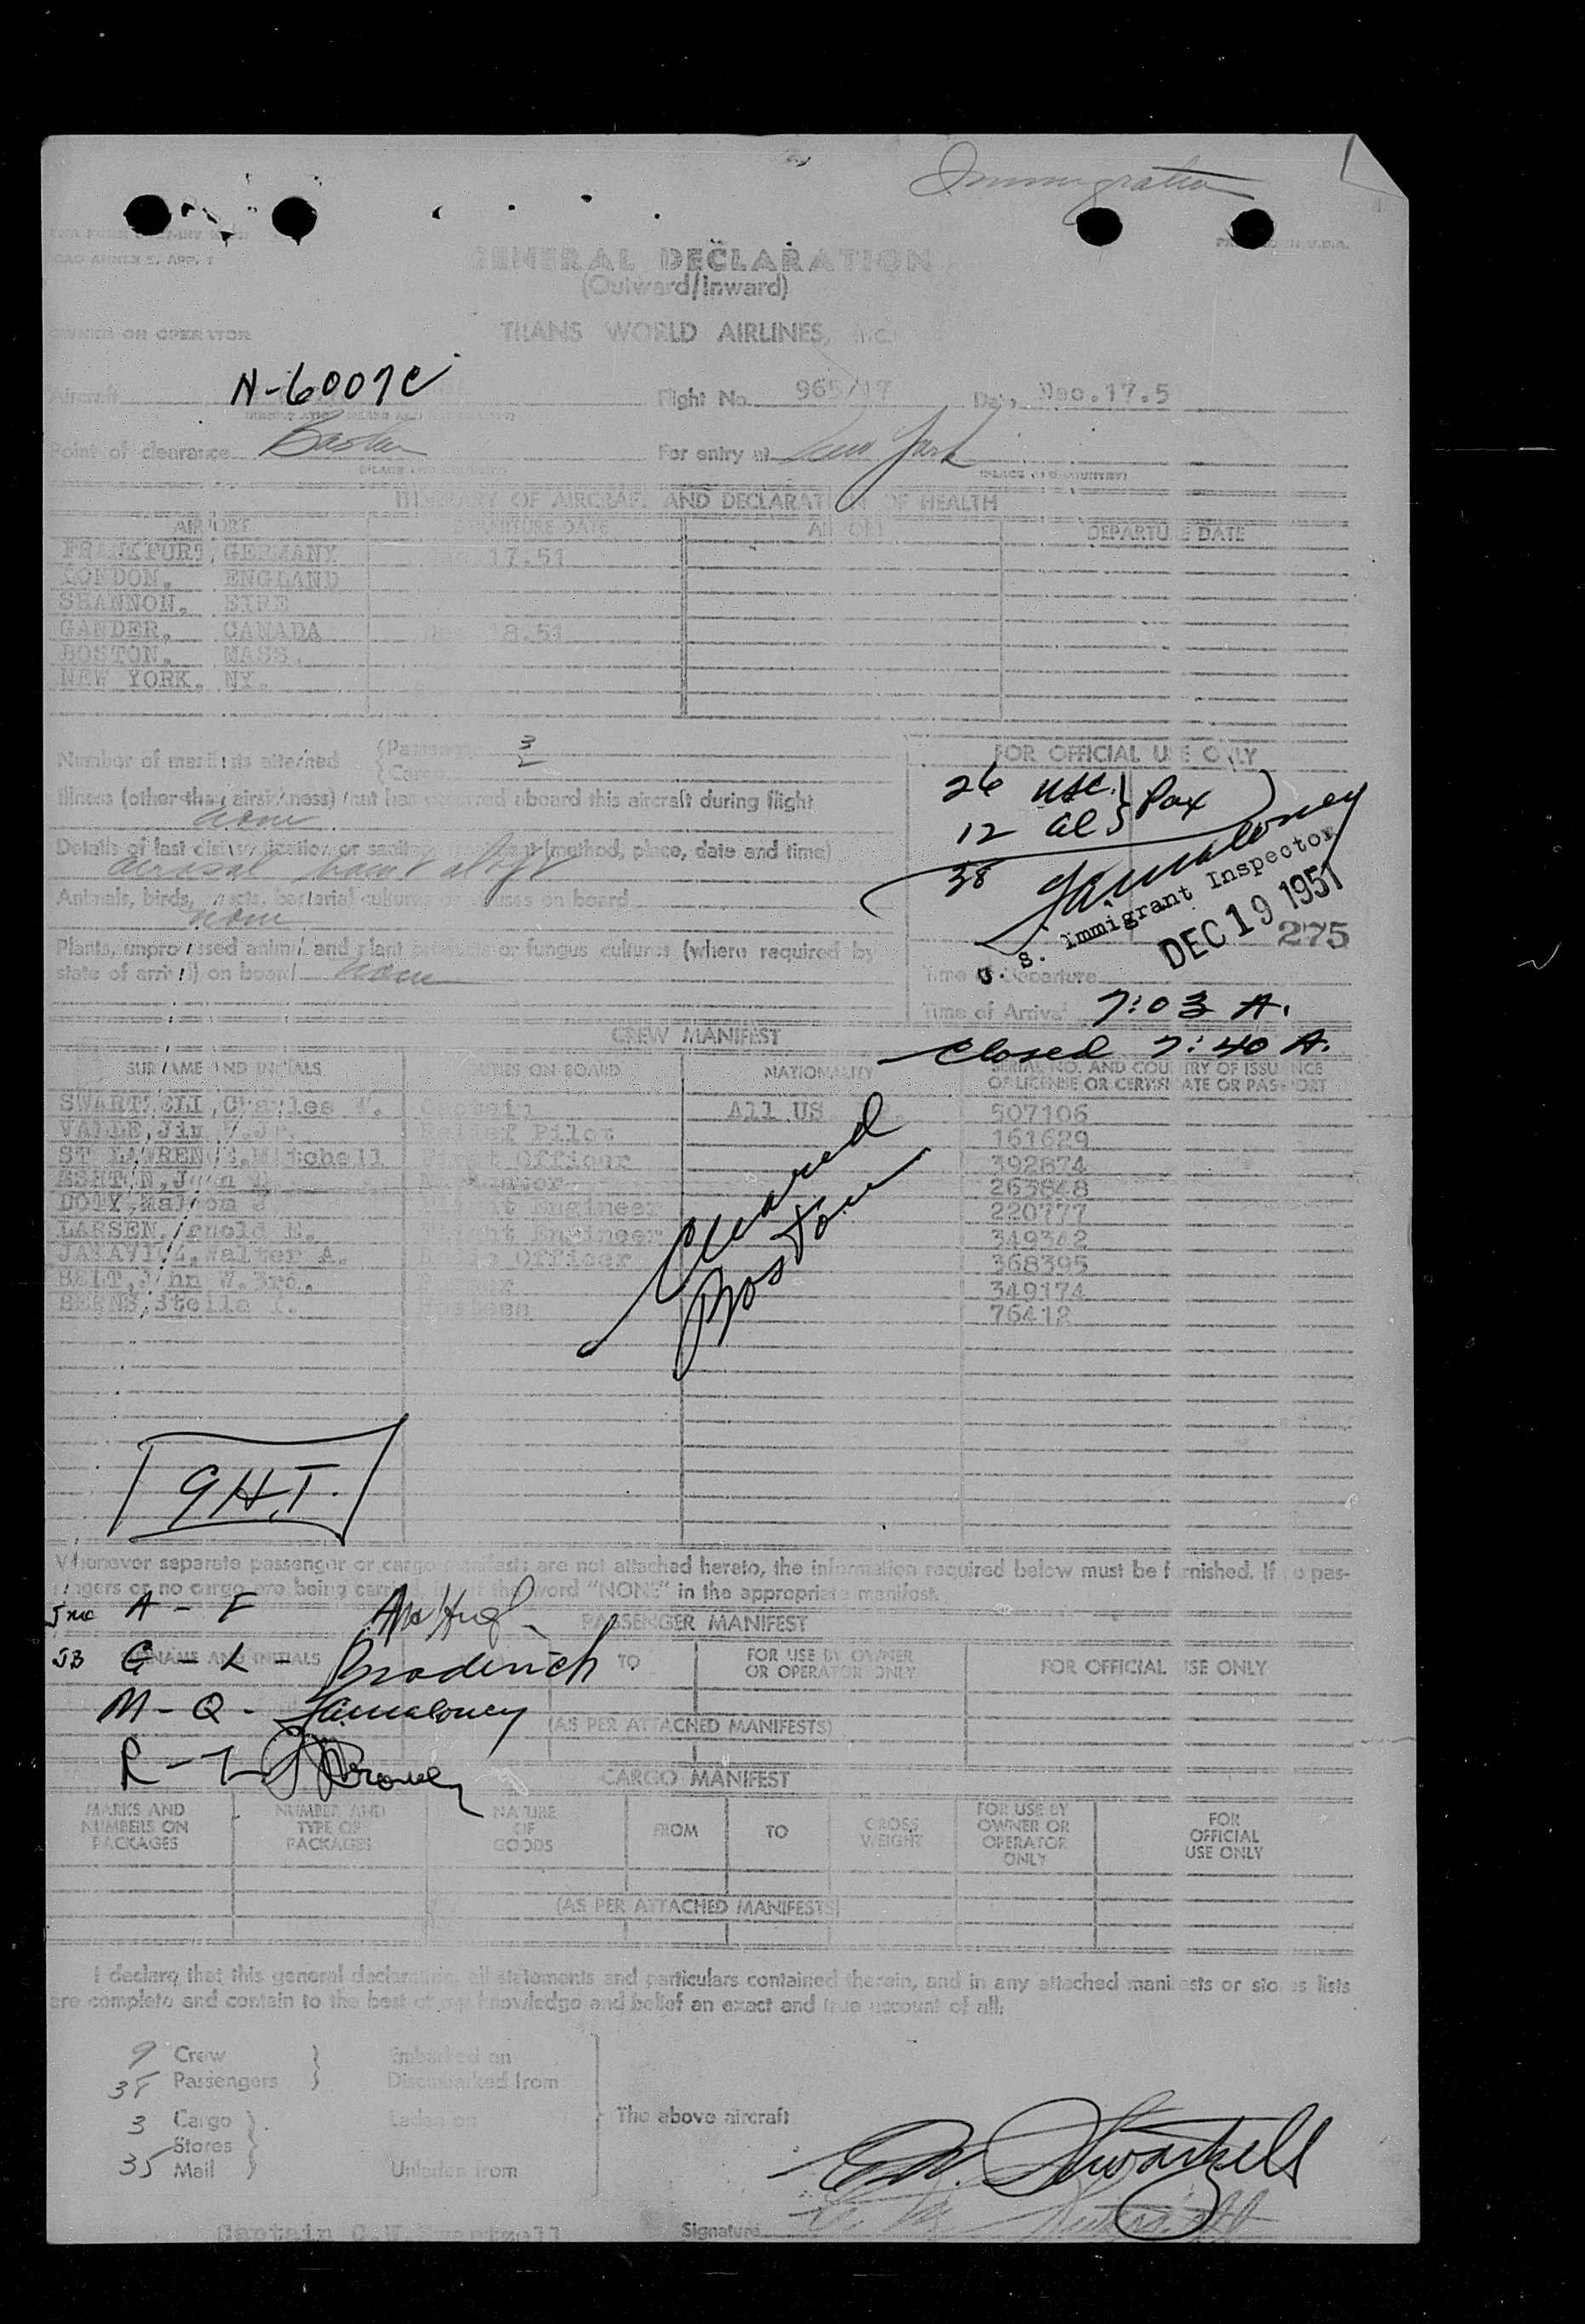 Immigration
GENERAL DECLARATION
(Outward/Inward)
OWNER OR OPERATOR TRANS WORLD AIRLINES, Inc.
Aircraft N-6007C Flight No. 965/17 Date, Dec.17.5
Point of clearance Boston For entry at New York
(PLACE AND COUNTRY) (PLACE AND COUNTRY)
ITINERARY OF AIRCRAFT AND DECLARATION OF HEALTH
AIRPORT DEPARTURE DATE AIRPORT DEPARTURE DATE
FRANKFURT, GERMANY 17.51
LONDON, ENGLAND
SHANNON, EIRE
GANDER, CANADA 18.51
BOSTON, MASS.
NEW YORK, NY.
Number of manifests attached (Passenger 3
(Cargo
FOR OFFICIAL USE ONLY
26 USC. } Pax
12 al
38
Illness (other than airsickness) that has occurred aboard this aircraft during flight
none
Details of last disinsectization or sanitary treatment (method, place, date and time)
aerosol
Animals, birds, insects, bacterial cultures or viruses on board
none
Plants, unprocessed animal and plant products or fungus cultures (where required by
state of arrival) on board none
U. S. Immigrant Inspector
DEC 19 1951
275
Time of Departure
Time of Arrival 7:03 A.
Closed 7:40 A.
CREW MANIFEST
SURNAME AND INITIALS DUTIES ON BOARD NATIONALITY SERIAL NO. AND COUNTRY OF ISSUANCE
OF LICENSE OR CERTIFICATE OR PASSPORT
SWARTZELL, Charles W. Captain All US 507106
VALLE, Jim Relief Pilot 161629
ST LAWRENCE, Mitchell First Officer 392874
ASHTON, John Navigator 263848
DOTY, Malcom Flight Engineer 220777
LARSEN, Arnold E. Flight Engineer 349342
Walter A. Radio Officer 368395
BELT, John W. 3rd. Purser 349174
BERNS, Stella Hostess 76412
Cleared
Boston
G.H.I.
Whenever separate passenger or cargo manifests are not attached hereto, the information required below must be furnished. If no pas-
sengers or no cargo are being carried, insert the word "NONE" in the appropriate manifest.
A - F
PASSENGER MANIFEST
SURNAME AND INITIALS TO FOR USE BY OWNER
OR OPERATOR ONLY FOR OFFICIAL USE ONLY
JB G - L - Broderick
M - Q -
(AS PER ATTACHED MANIFESTS)
R - Z
CARGO MANIFEST
MARKS AND
NUMBERS ON
PACKAGES NUMBER AND
TYPE OF
PACKAGES NATURE
OF
GOODS FROM TO GROSS
WEIGHT FOR USE BY
OWNER OR
OPERATOR
ONLY FOR
OFFICIAL
USE ONLY
(AS PER ATTACHED MANIFESTS)
I declare that this general declaration, all statements and particulars contained therein, and in any attached manifests or stores lists
are complete and contain to the best of my knowledge and belief an exact and true account of all:
9 Crew } Embarked on
38 Passengers } Disembarked from
3 Cargo } Laden on The above aircraft
Stores
35 Mail } Unladen from
C.W. Swartzell
Captain C.W. Swartzell Signature